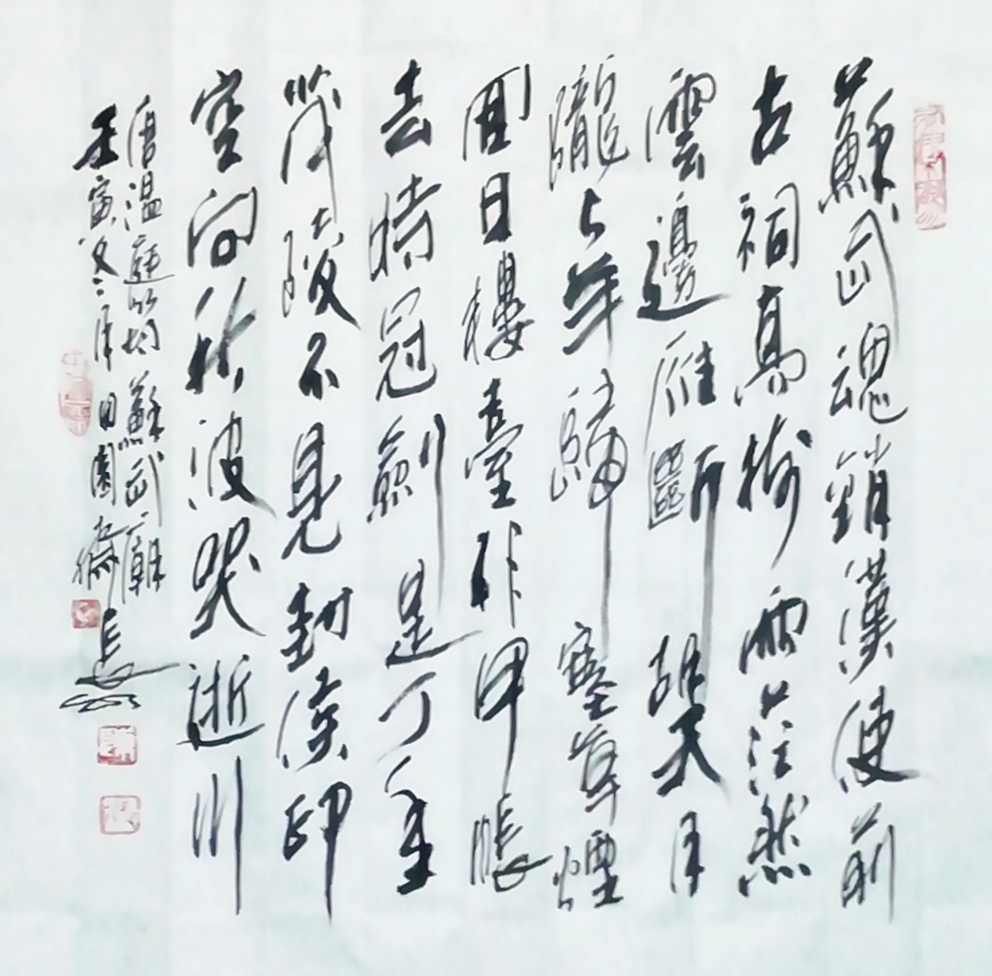 蘇武魂銷漢使前
古祠高樹兩茫然
雲邊雁斷胡天月
隴上羊歸塞草煙
回日樓臺非甲帳
去時冠劍是丁年
茂陵不見封侯印
空向秋波哭逝川
唐溫庭筠 蘇武廟
壬寅冬月 田園齋